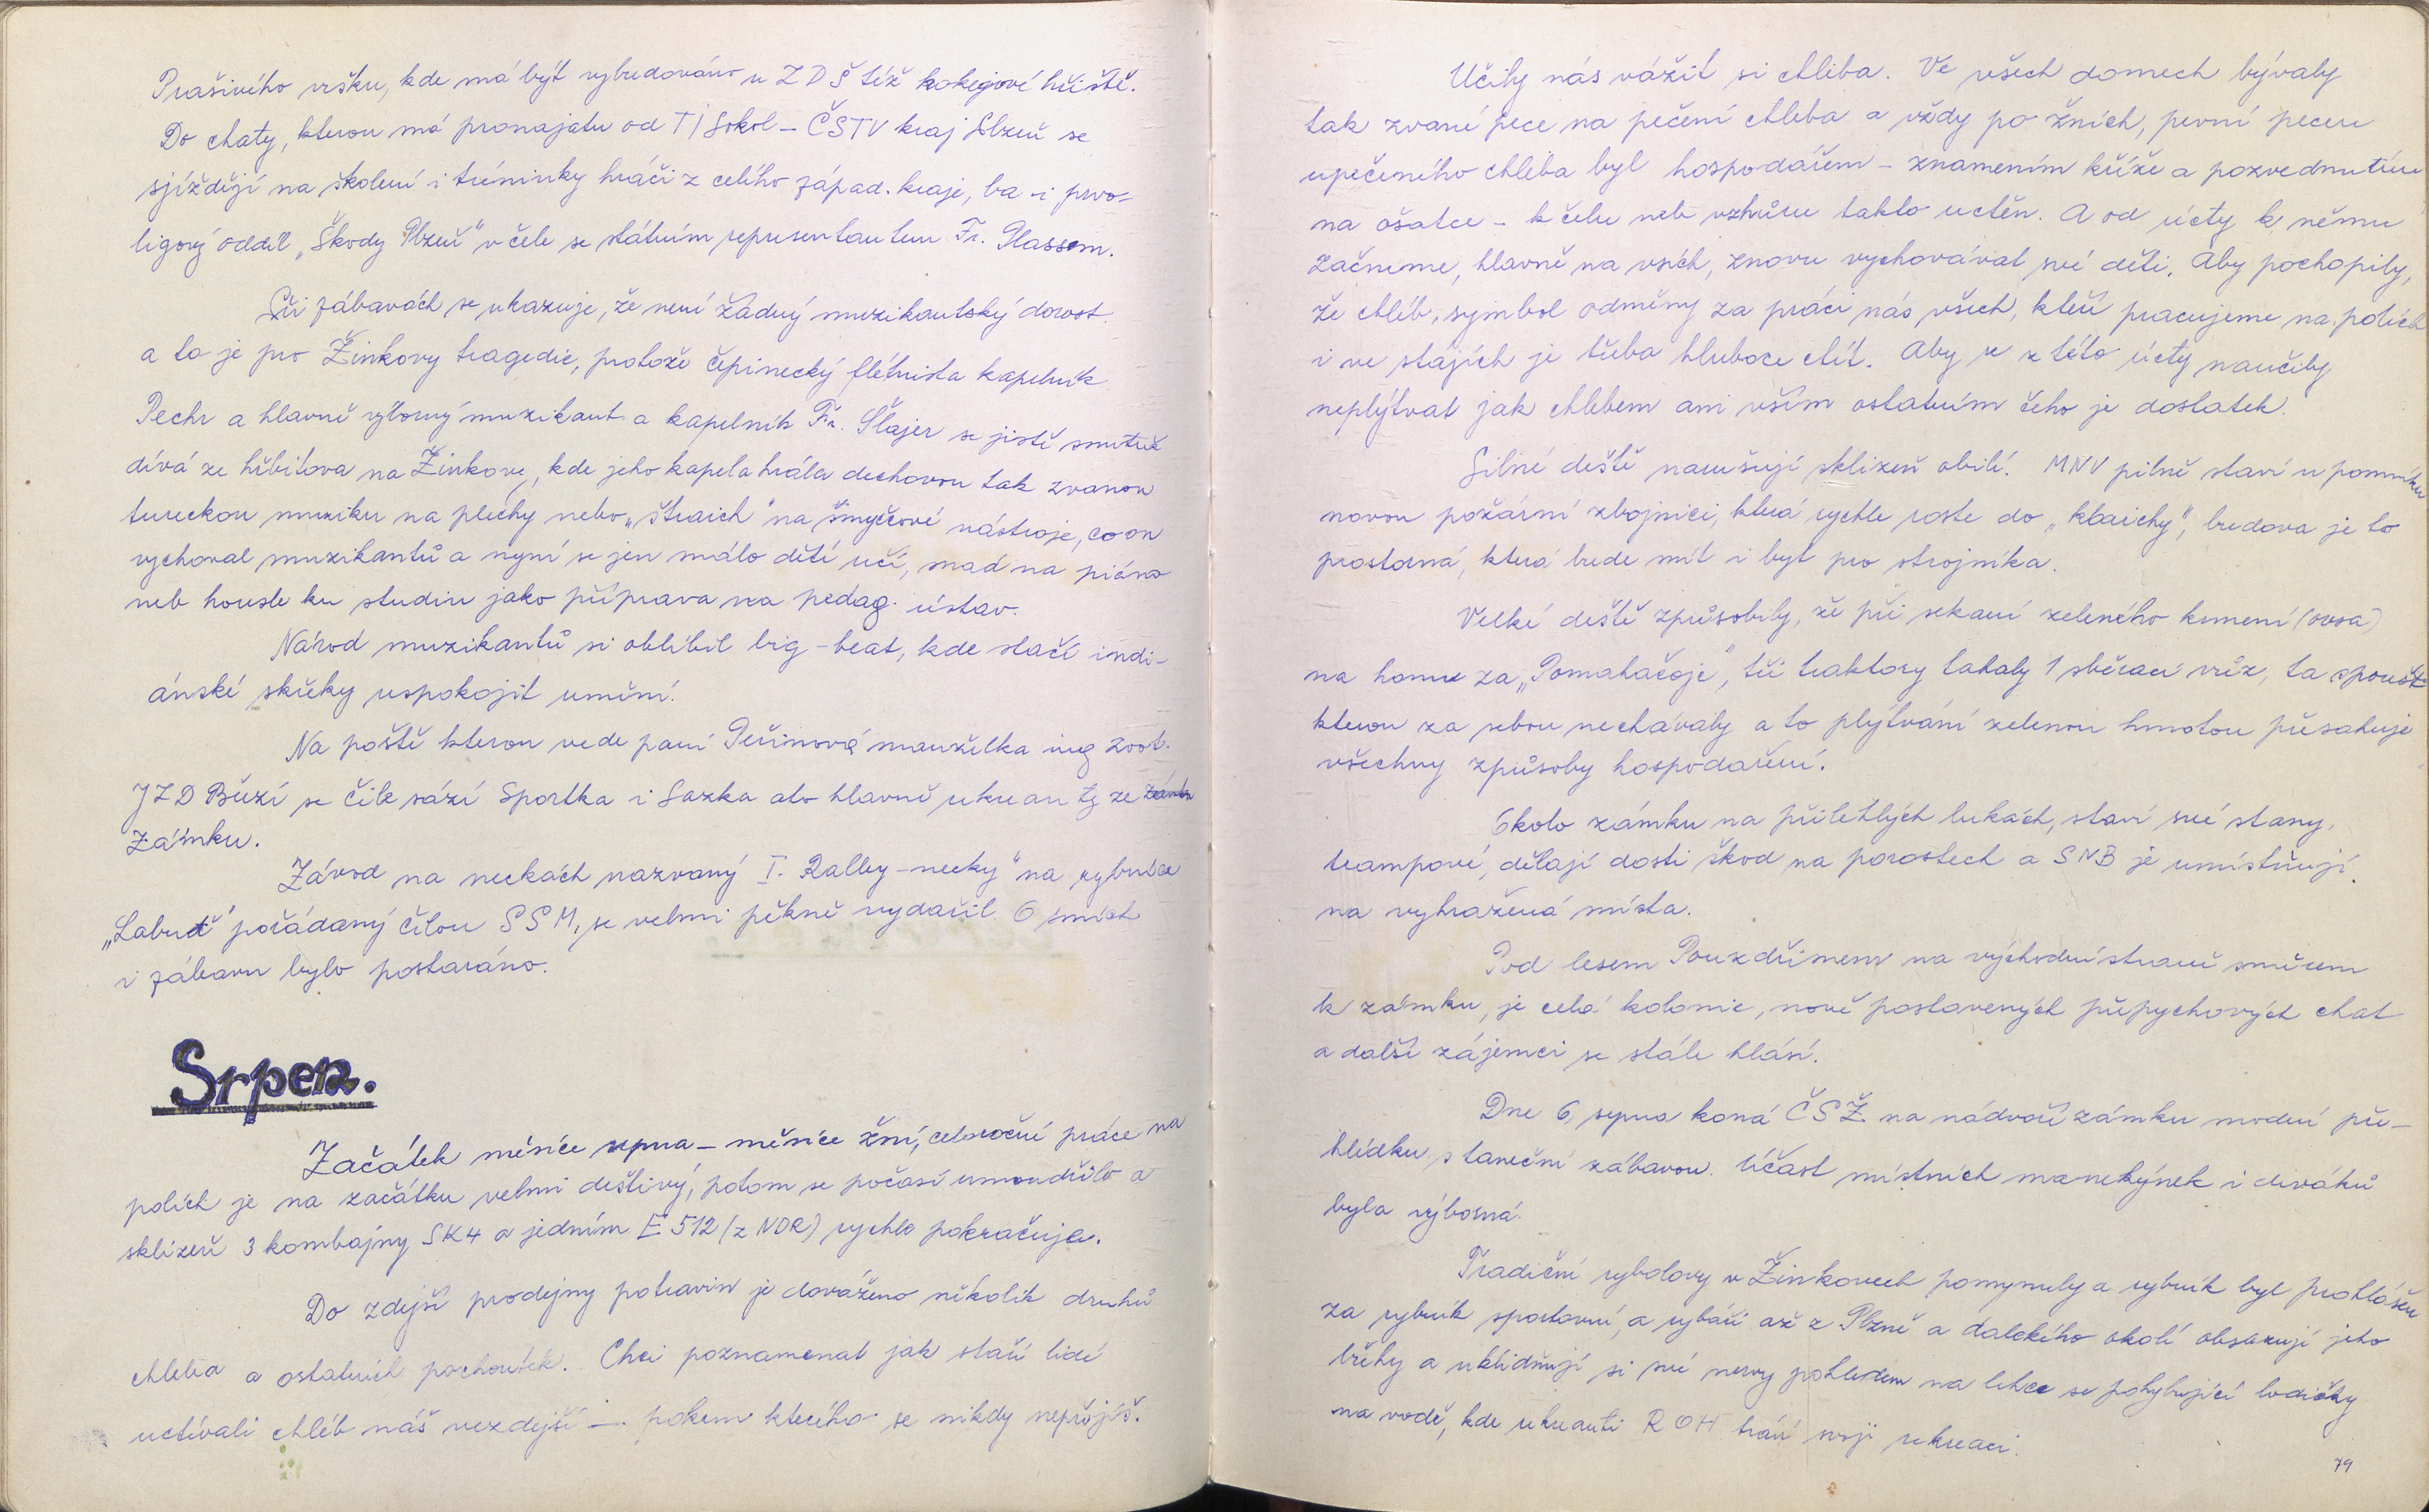 Prašivého vršku, kde má být vybudováno u ZDŠ též hokejové hřiště.
Do chaty, kterou má pronajatu od TJ Sokol – ČSTV kraj Plzeň se
sjíždějí na školení i tréninky hráči z celého západ. kraje, ba i prvo-
ligový oddíl „Škody Plzeň" v čele se státním representantem Fr. Plassem.
Při zábavách se ukazuje, že není žádný muzikantský dorost
a to je pro Žinkovy tragedie, protože čepinecký flétnista kapelník
Pechr a hlavně výborný muzikant a kapelník Fr. Šlajer se jistě smutně
dívá ze hřbitova na Žinkovy, kde jeho kapela hrála dechovou tak zvanou
tureckou muziku na plechy nebo „štraich" na smyčcové nástroje, co on
vychoval muzikantů a nyní se jen málo dětí učí, snad na piáno
neb housle ku studiu jako příprava na pedag. ústav.
Národ muzikantů si oblíbil big-beat, kde stačí indi-
ánské skřeky uspokojit umění.
Na poště kterou vede paní Peřinová manželka ing zoot.
JZD Březí se čile sází Sportka i Sazka ale hlavně rekreanty ze
Zámku.
Závod na neckách nazvaný I. Ralley-necky" na rybníce
„Labuť" pořádaný čilou SSM, se velmi pěkně vydařil. O smích
i zábavu bylo postaráno.
Srpen.
Začátek měsíce srpna – měsíce žní, celoroční práce na
polích je na začátku velmi deštivý, potom se počasí umoudřilo a
sklizeň 3 kombajny SK4 a jedním E 512 (z NDR) rychle pokračuje.
Do zdejší prodejny potravin je dováženo několik druhů
chleba a ostatních pochoutek. Chci poznamenat jak staří lidé
uctívali chléb náš vezdejší – pokrm kterého se nikdy nepřejíš.
Učily nás vážit si chleba. Ve všech domech bývaly
tak zvané pece na pečení chleba a vždy po žních, první pecen
upečeného chleba byl hospodářem – znamením kříže a pozvednutím
na ošatce – k čelu neb vzhůru takto uctěn. A od úcty k němu
začneme, hlavně na vsích, znovu vychovávat své děti. Aby pochopily,
že chléb, symbol odměny za práci nás všech, kteří pracujeme na polích
i ve stájích je třeba hluboce ctít. Aby se z této úcty naučily
neplýtvat jak chlebem ani vším ostatním čeho je dostatek.
Silné deště narušují sklizeň obilí. MNV pilně staví u pomníku
novou požární zbrojnici, která rychle roste do „klaichy", budova je to
prostorná, která bude mít i byt pro strojníka.
Velké deště způsobily, že při sekání zeleného krmení (ovsa)
na honu za „Pomahačoje", tři traktory tahaly 1 sběrací vůz, ta spoušť
kterou za sebou nechávaly a to plýtvání zelenou hmotou přesahuje
všechny způsoby hospodaření.
Okolo zámku na přilehlých lukách, staví své stany,
trampové, dělají dosti škod na porostech a SNB je umístňují
na vyhražená místa.
Pod lesem Pouzdřimem na východní straně směrem
k zámku, je celá kolonie, nově postavených přepychových chat
a další zájemci se stále hlásí.
Dne 6. srpna koná ČSŽ na nádvoří zámku modní pře-
hlídku s taneční zábavou. Účast místních manekýnek i diváků
byla výborná.
Tradiční rybolovy v Žinkovech pomynuly a rybník byl prohlášen
za rybník sportovní, a rybáři až z Plzně a dalekého okolí obsazují jeho
břehy a uklidňují si své nervy pohledem na lehce se pohybující lodičky
na vodě, kde rekreanti ROH tráví svoji rekreaci.
79